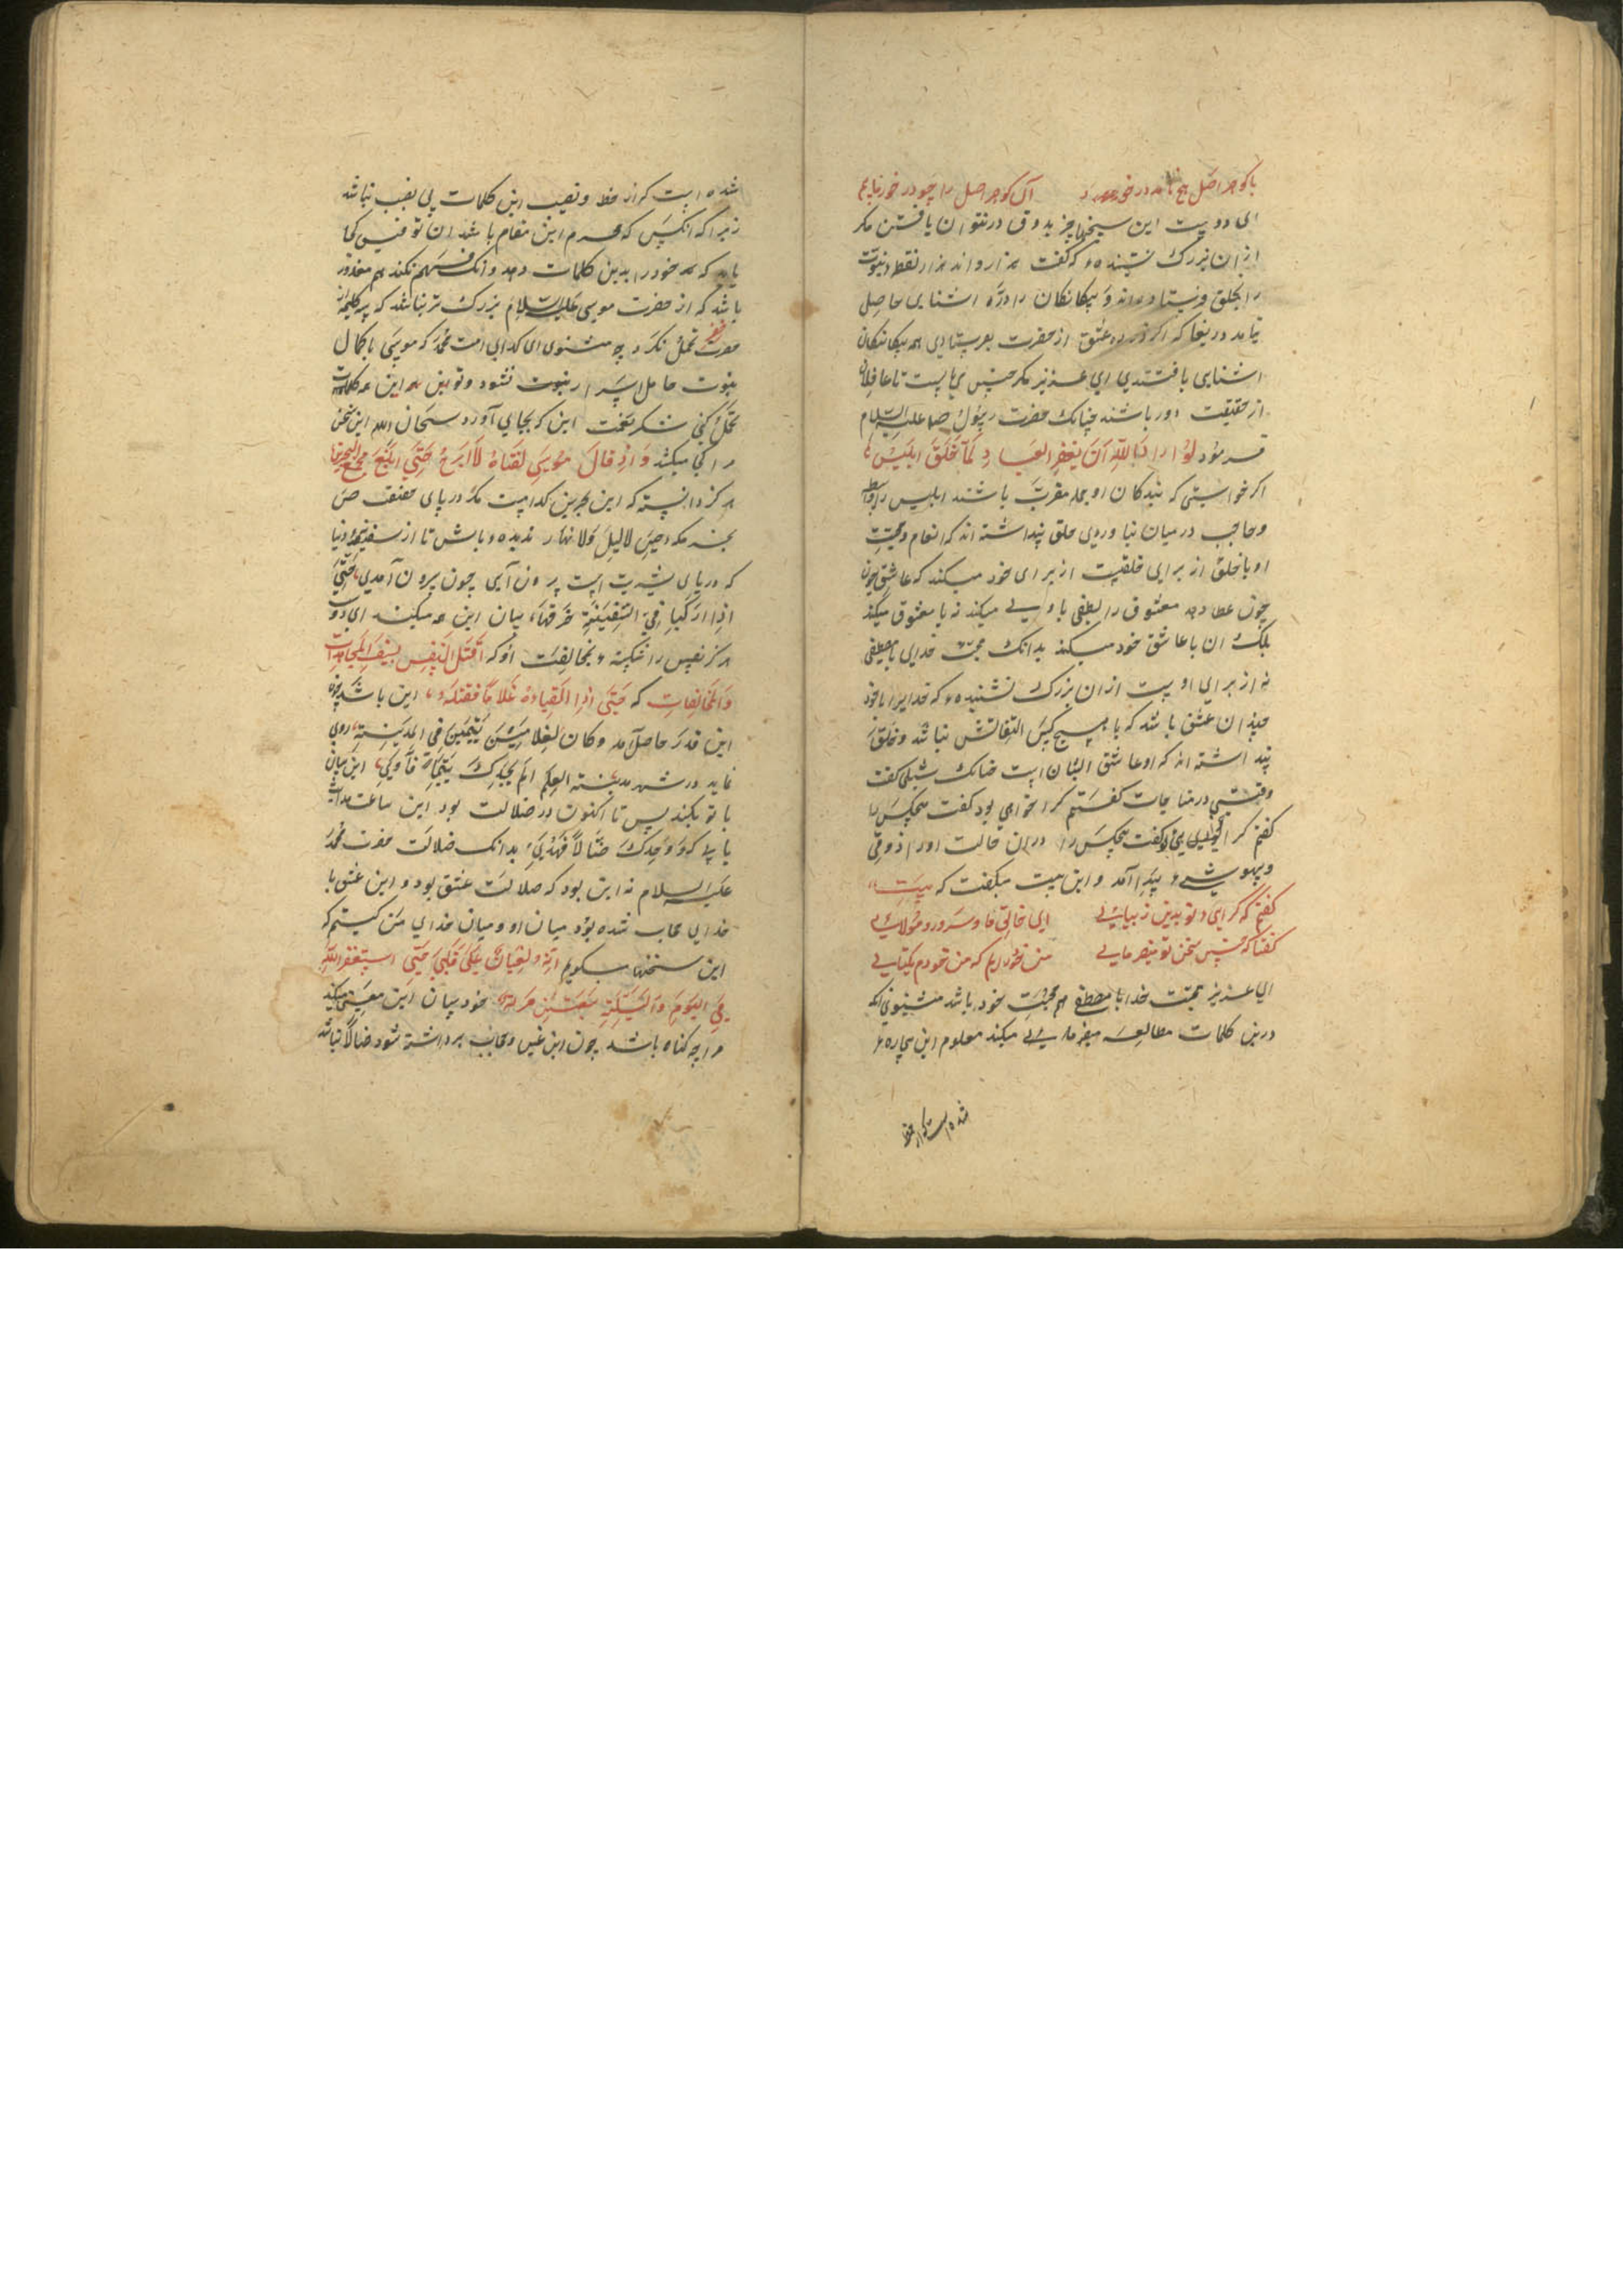 با کوهر اصل هیچ نامد در خور آن کوهر اصل را چو در خور نیایم
ای دوست این سخنها جز بذوق در نتوان یافتن مکر
ازان بزرک نشنیدهٔ که گفت هزار و اند هزار نقطه نبوت
را بخلق فرستادند و بیکانکان را ذرّه اشنایی حاصل
نیامد دریغا که اگر ذره عشق از حضرت بفرستادی همه بیکانکان
اشنایی یافتندی ای عزیز مکر چنین می بایست تا غافلان
از حقیقت دور باشند چنانک حضرت رسول علیه السلام
فرمود لو اراد الله ان یغفر العباد لما خلق ابلیس
اگر خواستی که بندکان او همه مقرب باشند ابلیس را واسطه
و حاجب در میان نیاوردی خلق پنداشته اند که انعام و محبت
او با خلق از برای خلقیت از برای خود میکند که عاشق چون
چون عطا دهد معشوق را و لطفی با وی میکند نه با معشوق میکند
بلک ان با عاشق خود میکند بدانک محبت خدای با مصطفی
نه از برای اوست ازان بزرک نشنیدهٔ که خدایرا با خود
چندان عشق باشد که با هیچ کس التفاتش نباشد و خلق
پنداشته اند که او عاشق ایشان است چنانک شبلی گفت
وقتی در مناجات گفتم کرا خواهی بود گفت هیچکس را
گفتم کرا گفت هیچکس را دران حالت اورا ذوقی
و بیهوشی پیدا آمد و این بیت میگفت که بیت
گفتم که کرایی تو بدین زیبایی ای خالق ما و سرور و مولایی
گفتا که چنین سخن تو میفرمایی من خود رایم که من خودم یکتایی
ای عزیز محبت خدا با مصطفی هم محبت خود باشد مشنوی انکه
درین کلمات مطالعه میفرمایی میکند معلوم این بیچارهٔ
شده است که از حظ
شده است که از حظ و نصیب این کلمات بی نصیب نباشد
زیرا که انکس که محرم این مقام باشد ان توفیق کجا
یابد که خود را بدین کلمات دهد و انک فهم نکند هم معذور
باشد که از حضرت موسی علیه السلام بزرک تر نباشد که سه کلمه از
حضرت خضر تحمل نکرد چه مشنوی ای کدای امت محمد که موسی با کمال
نبوت حامل اسرار نبوت نشود و تو این همه کلمات
تحمل کنی شکر نعمت این که بجای آورد سبحان الله این سخن
مرا کجا میکشد و اذ قال موسی لفتاه لا ابرح حتی ابلغ مجمع البحرین
هرکز دانسته که این بحرین کدامست مکر دریای حقیقت ص
بحر مکه حین لا لیل و لا نهار ندیدهٔ باش تا از سفینهٔ دنیا
که دریای بشریت است برون آیی چون بیرون آمدی حتی
اذا رکبا فی السفینة خرقها بیان این همه میکند ای دوست
هرکز نفس را نکشتهٔ بمخالفت او که اقتل النفس بسیف المجاهدات
و المخالفات که حتی اذا لقیا غلاما فقتله این باشد چون
این قدر حاصل آمد و کان لغلامین یتیمین فی المدینة روی
نماید در شهر مدینة العلم الم یجدک یتیما فآوی این بیان
با تو بکند پس تا اکنون در ضلالت بود این ساعت هدایت
یابد که و وجدک ضالا فهدی بدانک ضلالت حضرت محمد
علیه السلام نه این بود که ضلالت عشق بود و این عشق با
خدای حجاب شده بود میان او و میان خدای من کیستم که
این سخنها میکویم انه لیغان علی قلبی حتی استغفر الله
فی الیوم و اللیلة سبعین مرة خود بیان این معنی میکند
مرا چه کناه باشد چون این غین و حجاب برداشته شود ضالا نباشد